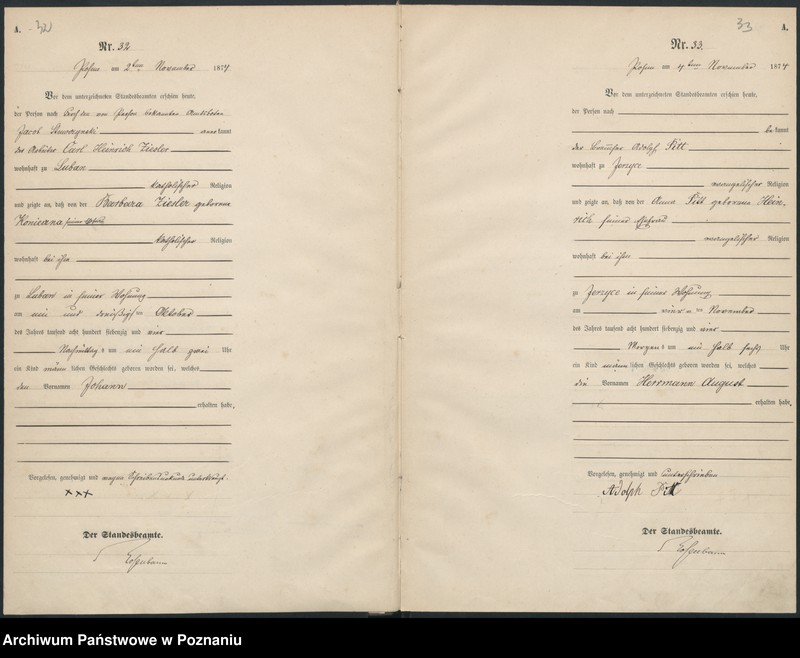 A.
32
Nr. 32
am 2ten November 1874
Vor dem unterzeichneten Standesbeamten erschien heute,
der Person nach
Jacob kannt
Carl Heinrich Ziesler
wohnhaft zu Luban
katholischer Religion
und zeigte an, daß von der Barbara Ziesler geborene
katholischer Religion
wohnhaft bei ihm
zu Luban in seiner Wohnung
am ein und dreißigsten Oktober
des Jahres tausend acht hundert siebenzig und vier
Nachmittags um ein halb zwei Uhr
ein Kind männlichen Geschlechts geboren worden sei, welches
den Vornamen Johann
erhalten habe.
Vorgelesen, genehmigt und wegen Schreibensunkunde unterkreuzt.
xxx
Der Standesbeamte.
33
A.
Nr. 33.
am 4ten November 1874
Vor dem unterzeichneten Standesbeamten erschien heute,
der Person nach
bekannt
der Adolph Pitt
wohnhaft zu
evangelischer Religion
und zeigte an, daß von der Anna Pitt geborene Hein-
rich seiner Ehefrau
evangelischer Religion
wohnhaft bei ihm
zu in seiner Wohnung
am vierten November
des Jahres tausend acht hundert siebenzig und vier
Morgens um ein halb Uhr
ein Kind männlichen Geschlechts geboren worden sei, welches
die Vornamen Herrmann August
erhalten habe.
Vorgelesen, genehmigt und unterschrieben
Adolph Pitt
Der Standesbeamte.
Archiwum Państwowe w Poznaniu